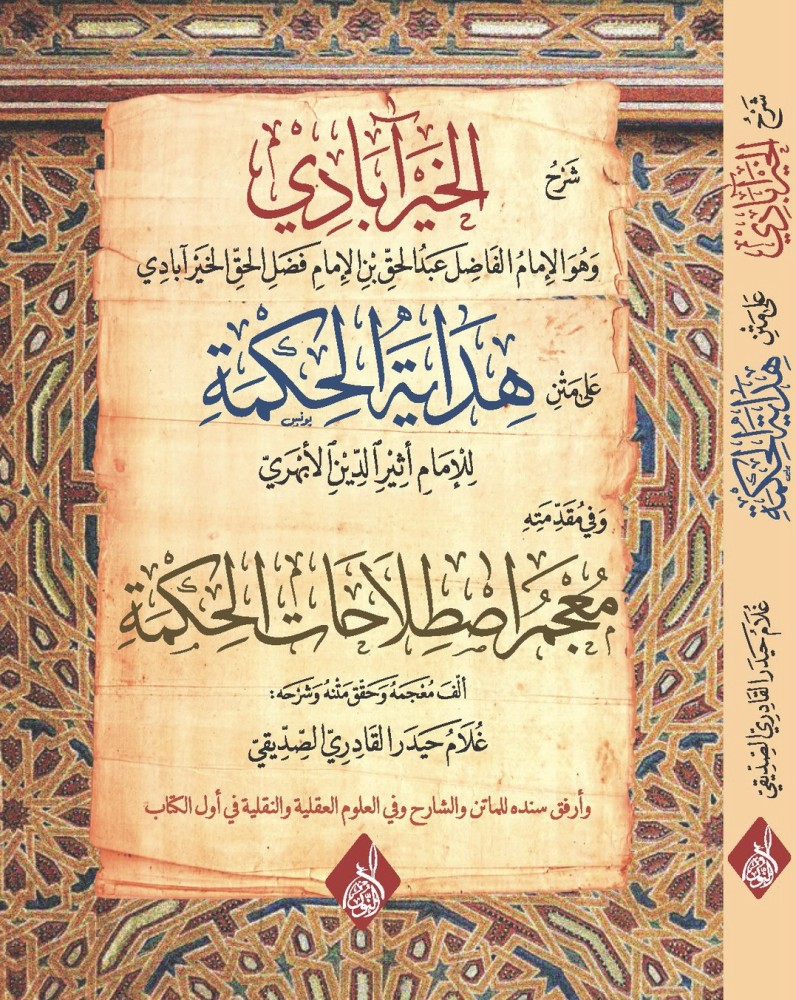 شَرْحُ الخَيْرآبَادِيْ
وَهُوَ الإِمَامُ الفَاضِل عَبْدُ الحَقِّ بْنِ الإِمَامِ فَضْلِ الحَقِّ الخَيْرآبادِي
عَلى مَتْنِ هِدَايَةِ الحِكْمَةِ
يونس
لِلإِمَامِ أَثِيْرِ الدِّيْنِ الأَبْهَرِيّ
وَفِي مُقَدِّمَتِهِ
مُعْجَمُ اصْطِلَاحَاتِ الحِكْمَةِ
ألَّفَ مُعْجَمَهُ وَحَقَّقَ مَتْنَهُ وَشَرْحَه:
غُلَامُ حَيْدَر القَادِرِيّ الصِّدِّيقِيّ
وأرفق سنده للماتن والشارح وفي العلوم العقلية والنقلية في أول الكتاب
شَرْحُ الخَيْرآبَادِيْ عَلى مَتْنِ هِدَايَةِ الحِكْمَةِ غُلَامُ حَيْدَر القَادِرِيّ الصِّدِّيقِيّ